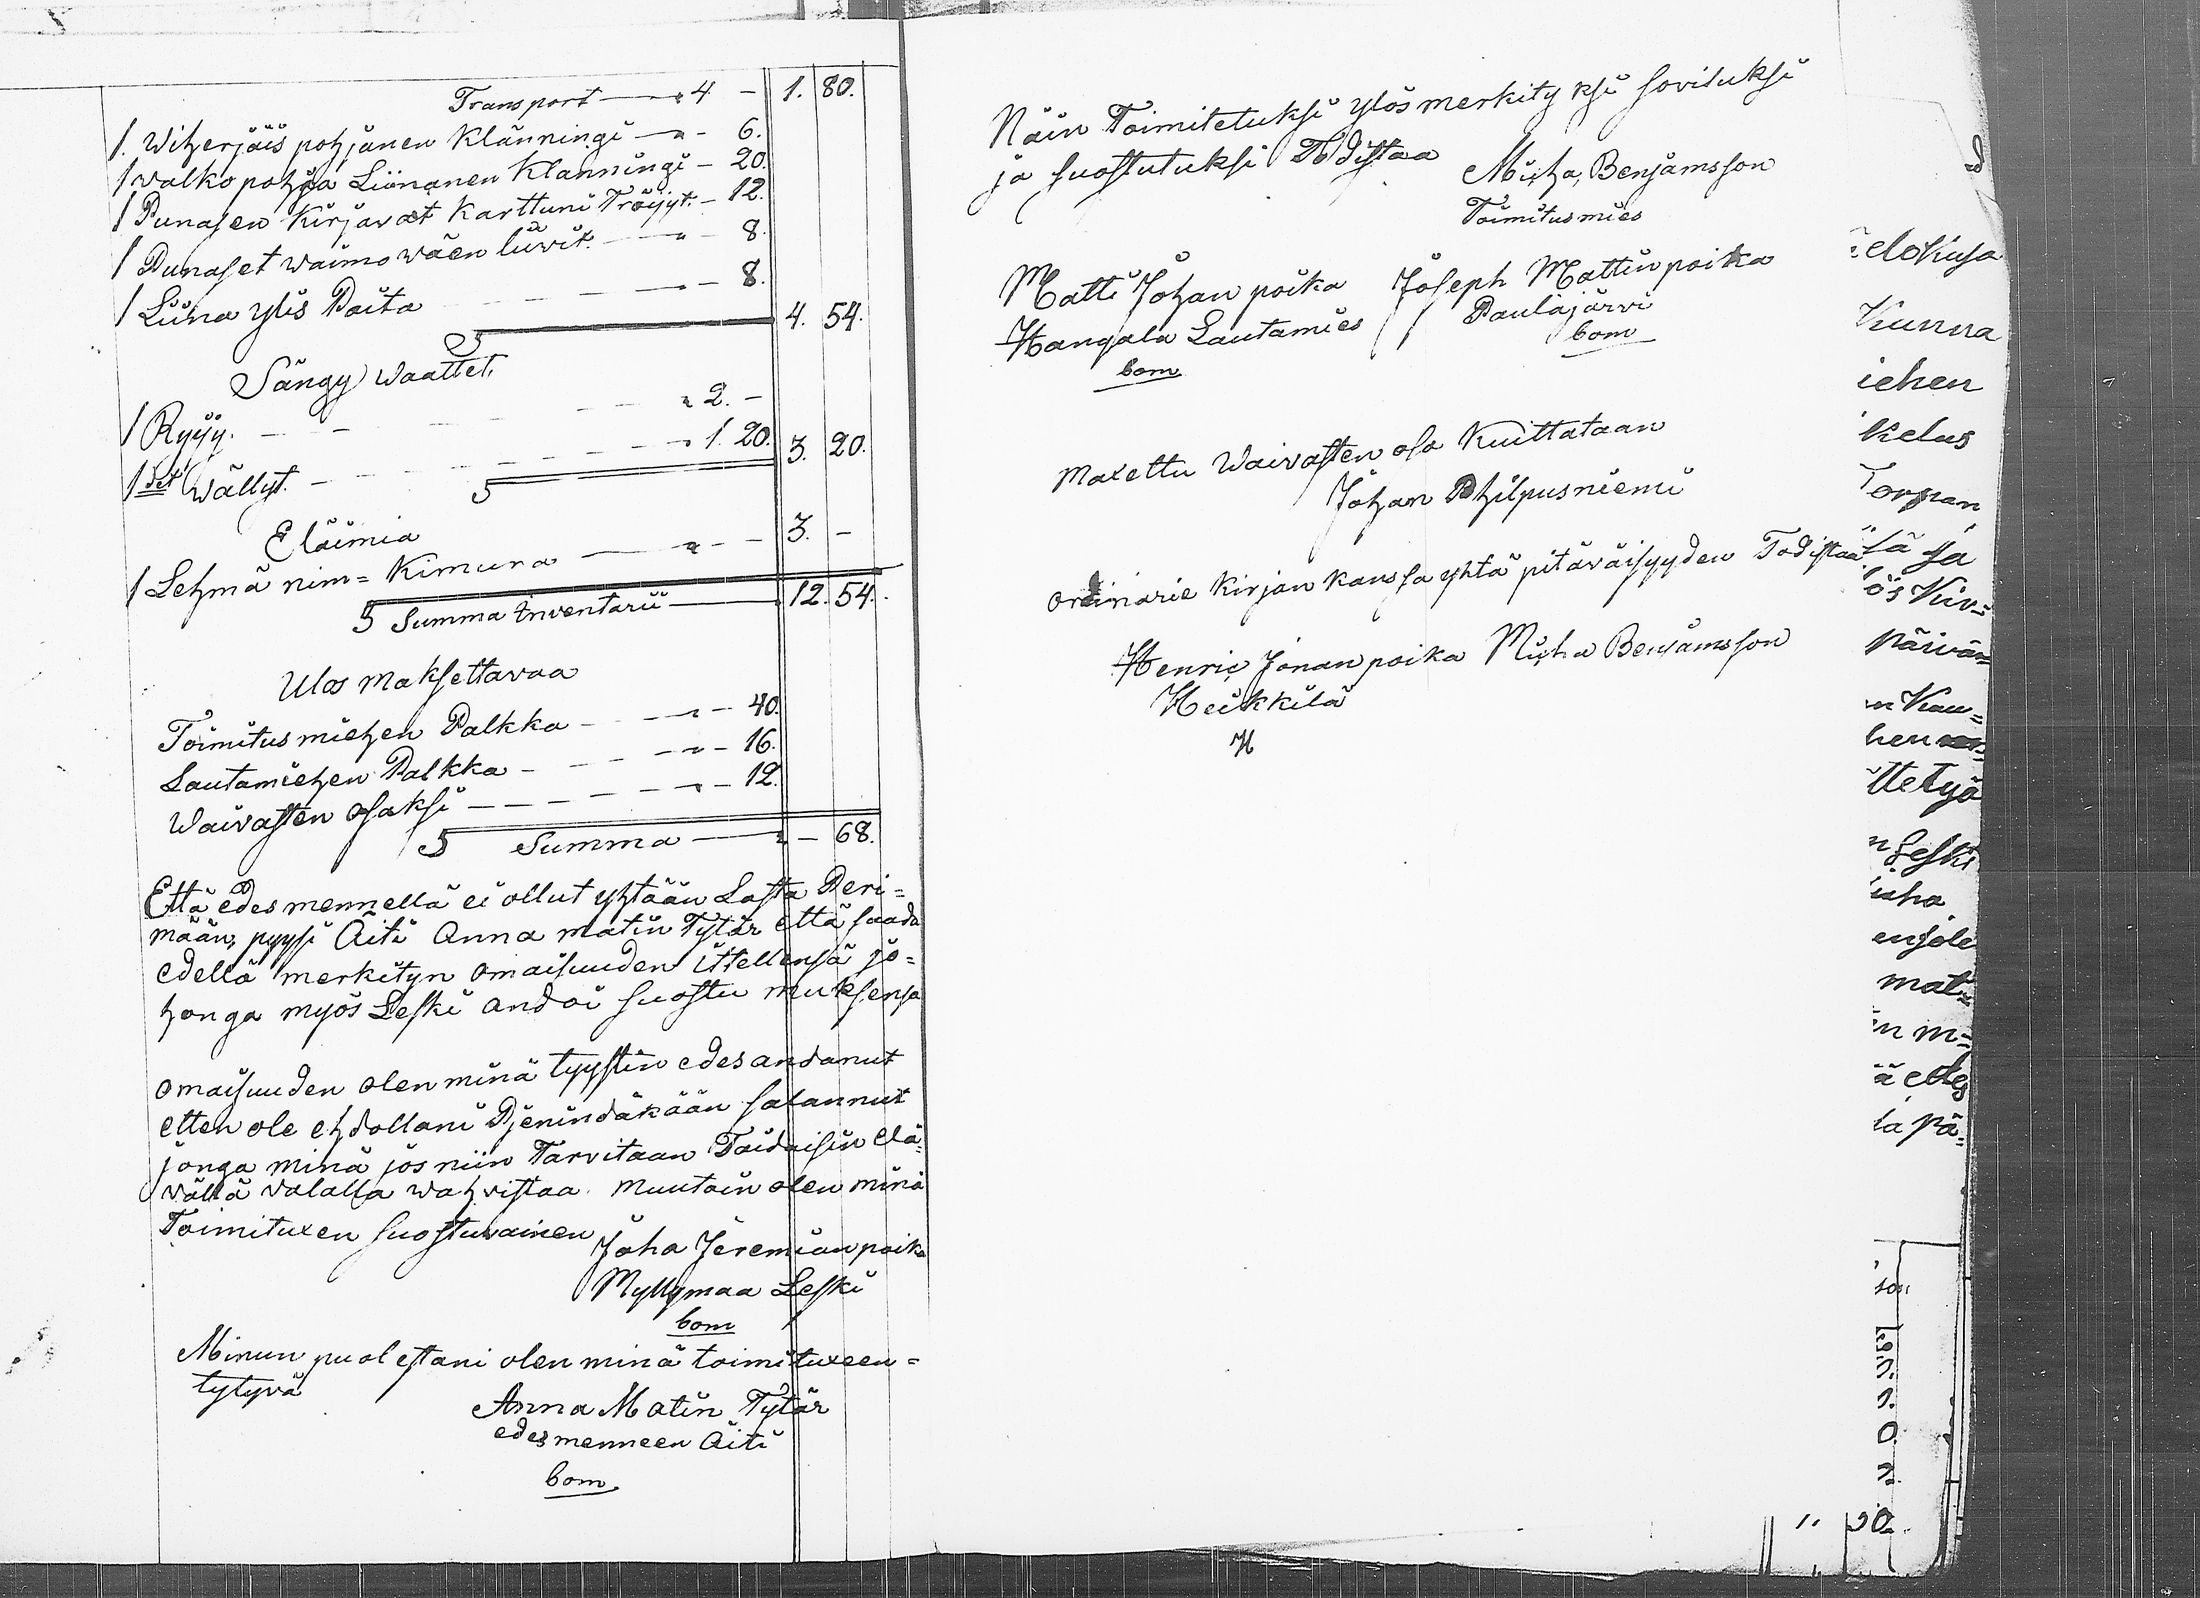 Transport — " 4 — 1. 80.
1. Wiherjäis pohjanen Klänningi — " — 6.
1 valko pohja Liinanen Klänningi — 20.
1 Punasen Kirjavat Karttuni Tröijyt. — 12.
1 Punaset waimo wäen liivit. — " — 8.
1 Liina ylis Paita — " — 8. 4. 54.
Sängy waattet.
1 Ryijy. — — " 2. —
1 det Wällyt. — — " 1. 20. 3. 20.
Eläimia
1 Lehmä nim= Kimuna — " — — 3. —
S Summa inventarii — 12. 54.
Ulos maksettavaa
Toimitus miehen Palkka — " — 40.
Lautamiehen Palkka — — " — 16.
Waivasten osaksi — — " — 12.
S Summa — " — 68.
Että edes mennellä ei ollut yhtään Lasta Peri=
mään, pyysi Äiti Anna matin Tytär että saada
edellä merkityn omaisuuden ittellensä jo=
honga myös Leski andoi suostu muksensa
omaisuuden olen minä tyystin edesandanut
etten ole ehdollani Pienindäkään salannut
jonga minä jos niin Tarvitaan Taidaisin elä=
vällä valalla wahvistaa. muutoin olen minä
Toimituxen suostuvainen
Joha Jeremian poika
Myllymaa Leski
bom
Minun puolestani olen minä toimituxeen=
tytyvä
Anna Matin Tytär
edesmenneen Äiti
bom
Näin Toimitetuksi ylös merkity ksi sovituksi
ja suostutuksi Todistaa
Micha, Benjamsson
Toimitus mies
Matti Johan poika Joseph Mattin poika
Hangala Lautamies Paulajärvi
bom bom
maxettu Waivasten osa Kuittataan
Johan Philpusniemi
ordinarie Kirjan kanssa yhtä pitäväisyyden Todistaa
Henric Johan poika Micha Benjamsson
Heikkilä
H
elokusa
Kunna
iehen
kelus
Torpan
tä ja
ös Kiv=
päivän=
n Kau=
hen
ttetyö
n Leski
iaha
ensole
mat=
in m=
ä edes
la pä=
20.